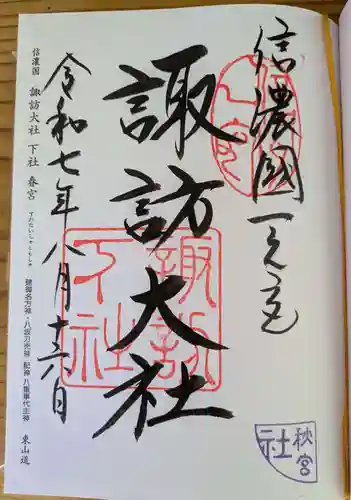 信濃國一之宮
諏訪大社
令和七年八月十六日
諏訪下社
秋宮社
信濃国 諏訪大社 下社 春宮
すわたいしゃしもしゃ
建御名方神・八坂刀売神 配神 八重事代主神
東山道